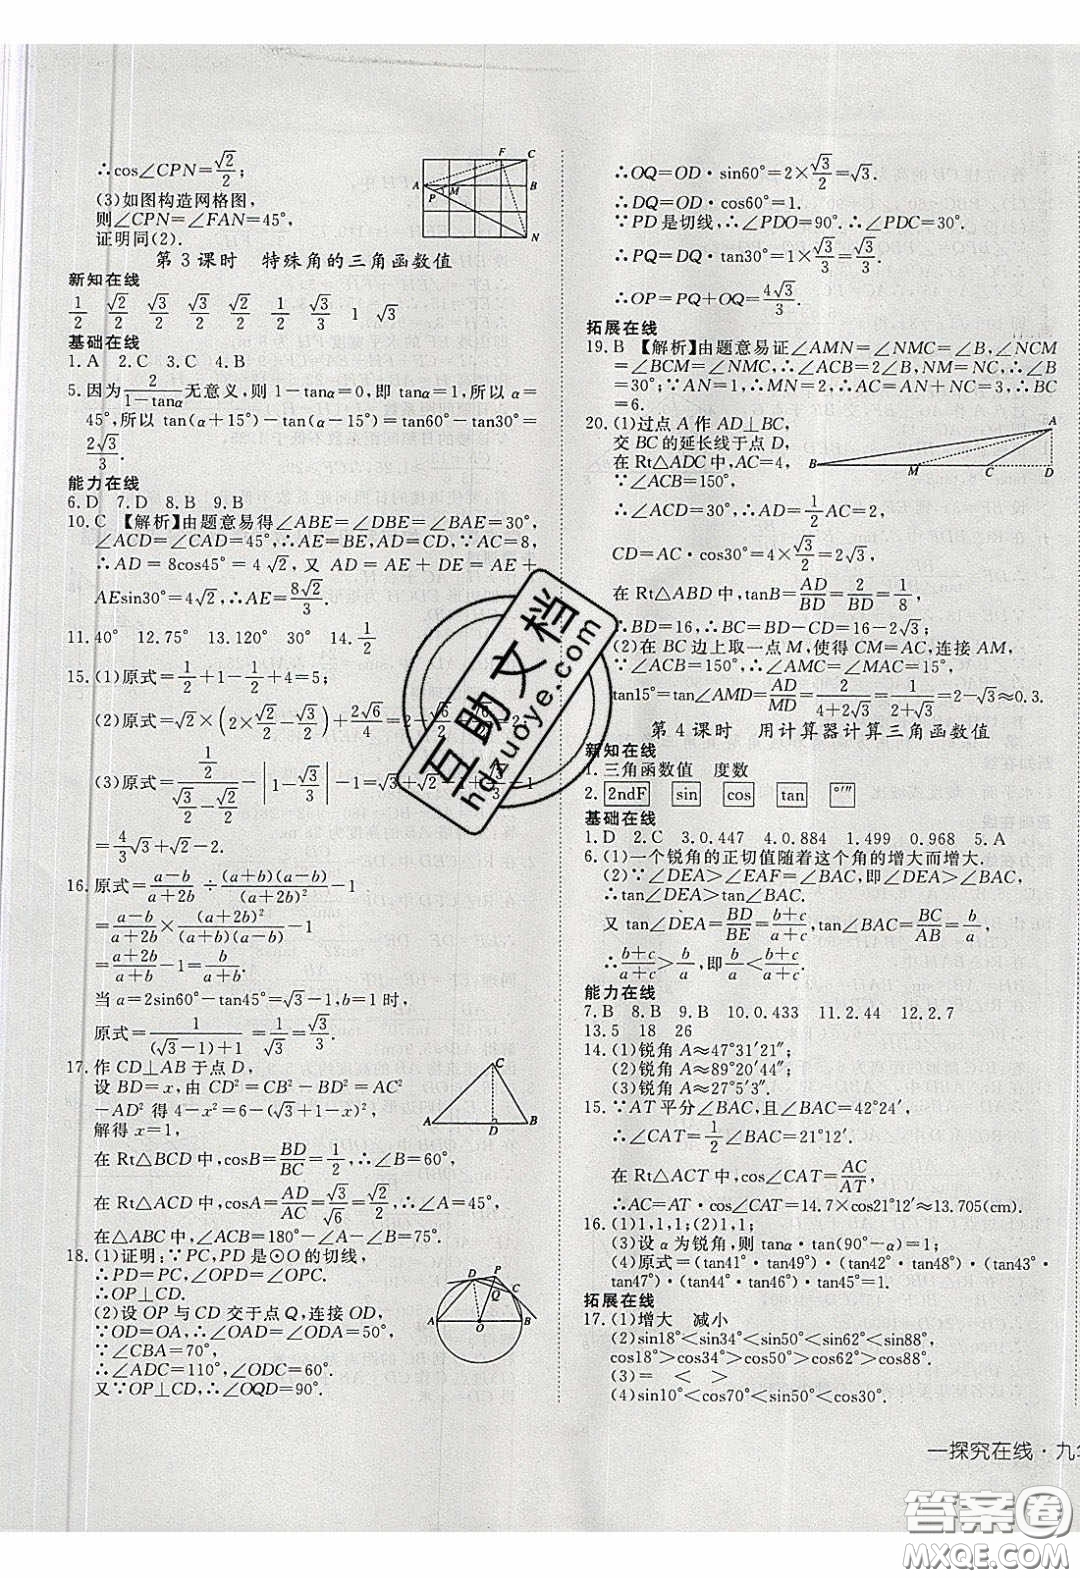 ∴cos∠CPN=√2/2;
(3)如图构造网格图,
则∠CPN=∠FAN=45°,
证明同(2).
F C
A M B
P
N
第3课时 特殊角的三角函数值
新知在线
1/2 √2/2 √3/2 √3/2 √2/2 1/2 √3/3 1 √3
基础在线
1.A 2.C 3.C 4.B
5.因为2/(1-tanα)无意义,则1-tanα=0,即tanα=1,所以α=
45°,所以tan(α+15°)-tan(α-15°)=tan60°-tan30°=
2√3/3.
能力在线
6.D 7.D 8.B 9.B
10.C 【解析】由题意易得∠ABE=∠DBE=∠BAE=30°,
∠ACD=∠CAD=45°,∴AE=BE,AD=CD.∵AC=8,
∴AD=8cos45°=4√2,又AD=AE+DE=AE+
AEsin30°=4√2,∴AE=8√2/3.
11.40° 12.75° 13.120° 30° 14.1/2
15.(1)原式=1/2+1-1/2+4=5;
(2)原式=√2×(2×√2/2-√3/2)+2√6/4=2-√6/2+√6/2=2;
(3)原式=(1/2)/(√3/2-√2/2)-|1-√3/3|=√3+√2-1+√3/3-1
=4/3√3+√2-2.
16.原式=(a-b)/(a+2b)÷(a+b)(a-b)/(a+2b)²-1
=(a-b)/(a+2b)×(a+2b)²/(a+b)(a-b)-1
=(a+2b)/(a+b)-1=b/(a+b).
当a=2sin60°-tan45°=√3-1,b=1时,
原式=1/((√3-1)+1)=1/√3=√3/3.
17.作CD⊥AB于点D,
设BD=x,由CD²=CB²-BD²=AC²
-AD²得4-x²=6-(√3+1-x)²,
解得x=1,
C
A D B
在Rt△BCD中,cosB=BD/BC=1/2,∴∠B=60°,
在Rt△ACD中,cosA=AD/AC=√3/√6=√2/2,∴∠A=45°,
在△ABC中,∠ACB=180°-∠A-∠B=75°.
18.(1)证明:∵PC,PD是⊙O的切线,
∴PD=PC,∠OPD=∠OPC.
∴OP⊥CD.
(2)设OP与CD交于点Q,连接OD,
∵OD=OA,∴∠ODA=∠ODA=50°,
∵∠CBA=70°,
∴∠ADC=110°,∠ODC=60°.
又∵OP⊥CD,∴∠OQD=90°.
D P
Q C
A O B
∴OQ=OD·sin60°=2×√3/2=√3.
∴DQ=OD·cos60°=1.
∵PD是切线,∴∠PDO=90°.∴∠PDC=30°.
∴PQ=DQ·tan30°=1×√3/3=√3/3.
∴OP=PQ+OQ=4√3/3.
拓展在线
19.B 【解析】由题意易证∠AMN=∠NMC=∠B,∠NCM
=∠BCM=∠NMC,∴∠ACB=2∠B,NM=NC,∴∠B
=30°;∵AN=1,∴MN=2,∴AC=AN+NC=3,∴BC
=6.
20.(1)过点A作AD⊥BC,
交BC的延长线于点D,
在Rt△ADC中,AC=4,
∵∠ACB=150°,
A
B M C D
∴∠ACD=30°,AD=1/2AC=2,
CD=AC·cos30°=4×√3/2=2√3,
在Rt△ABD中,tanB=AD/BD=2/BD=1/8,
∴BD=16,∴BC=BD-CD=16-2√3.
(2)在BC边上取一点M,使得CM=AC,连接AM,
∵∠ACB=150°,∴∠AMC=∠MAC=15°,
tan15°=tan∠AMD=AD/MD=2/(4+2√3)=1/(2+√3)=2-√3≈0.3.
第4课时 用计算器计算三角函数值
新知在线
1.三角函数值 度数
2. 2ndF sin cos tan °′″
基础在线
1.D 2.C 3.0.447 4.0.884 1.499 0.968 5.A
6.(1)一个锐角的正切值随着这个角的增大而增大.
(2)∵∠DEA>∠EAF=∠BAC,即∠DEA>∠BAC,
∴tan∠DEA>tan∠BAC.
又tan∠DEA=BD/BE=(b+c)/(a+c),tan∠BAC=BC/AB=b/a,
∴(b+c)/(a+c)>b/a,即b/a<(b+c)/(a+c).
能力在线
7.B 8.B 9.B 10.0.433 11.2.44 12.2.7
13.5 18 26
14.(1)锐角A≈47°31′21″;
(2)锐角A≈89°20′44″;
(3)锐角A≈27°5′3″.
15.∵AT平分∠BAC,且∠BAC=42°24′,
∴∠CAT=1/2∠BAC=21°12′.
在Rt△ACT中,cos∠CAT=AC/AT,
∴AC=AT·cos∠CAT=14.7×cos21°12′≈13.705(cm).
16.(1)1,1,1;(2)1,1;
(3)设α为锐角,则tanα·tan(90°-α)=1;
(4)原式=(tan41°·tan49°)·(tan42°·tan48°)·(tan43°·
tan47°)·(tan44°·tan46°)·tan45°=1.
拓展在线
17.(1)增大 减小
(2)sin18°<sin34°<sin50°<sin62°<sin88°,
cos18°>cos34°>cos50°>cos62°>cos88°.
(3)= < >
(4)sin10°<cos70°<sin50°<cos30°.
一探究在线·九
互助文档
hdzuoye.com
答案圈
MXQE.COM